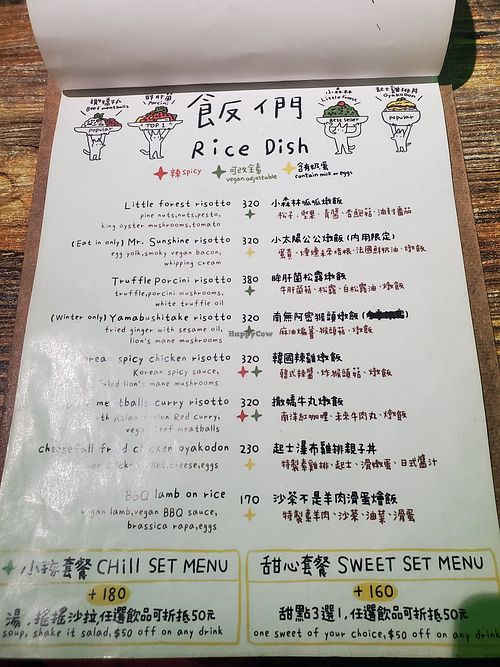 Beef meatballs
Porcini
小森林
Little forest
起士雞排丼
Oyakodon
popular
TOP 1
Best Seller
popular
飯們
Rice Dish
辣 spicy
可改全素
vegan adjustable
含有奶蛋
contain milk or eggs
Little forest risotto 320 小森林呱呱燉飯
pine nuts, nuts, pesto, 松子、堅果、青醬、杏鮑菇、油封番茄
king oyster mushrooms, tomato
(Eat in only) Mr. Sunshine risotto 320 小太陽公公燉飯 (內用限定)
egg yolk, smoky vegan bacon, 蛋黃、煙燻未來培根、法國鮮奶油、燉飯
whipping cream
Truffle Porcini risotto 380 牛肝菌松露燉飯
truffle, porcini mushrooms, 牛肝菌菇、松露、白松露油、燉飯
white truffle oil
(Winter only) Yamabushitake risotto 320 南無阿密猴頭燉飯
fried ginger with sesame oil, 麻油煸薑、猴頭菇、燉飯
lion's mane mushrooms
HappyCow
Korean spicy chicken risotto 320 韓國辣雞燉飯
Korean spicy sauce, 韓式辣醬、炸猴頭菇、燉飯
fried lion's mane mushrooms
meatballs curry risotto 320 撒嬌牛丸燉飯
Asian fusion Red curry, 南洋紅咖哩、未來牛肉丸、燉飯
vegan beef meatballs
cheesefall fried chicken oyakodon 230 起士瀑布雞排親子丼
cheese, eggs 特製素雞排、起士、滑嫩蛋、日式醬汁
BBQ lamb on rice 170 沙茶不是羊肉滑蛋燴飯
vegan lamb, vegan BBQ sauce, 特製素羊肉、沙茶、油菜、滑蛋
brassica rapa, eggs
套餐 CHill SET MENU
+180
湯、搖搖沙拉,任選飲品可折抵50元
soup, shake it salad, $50 off on any drink
甜心套餐 SWEET SET MENU
+160
甜點3選1,任選飲品可折抵50元
one sweet of your choice, $50 off on any drink